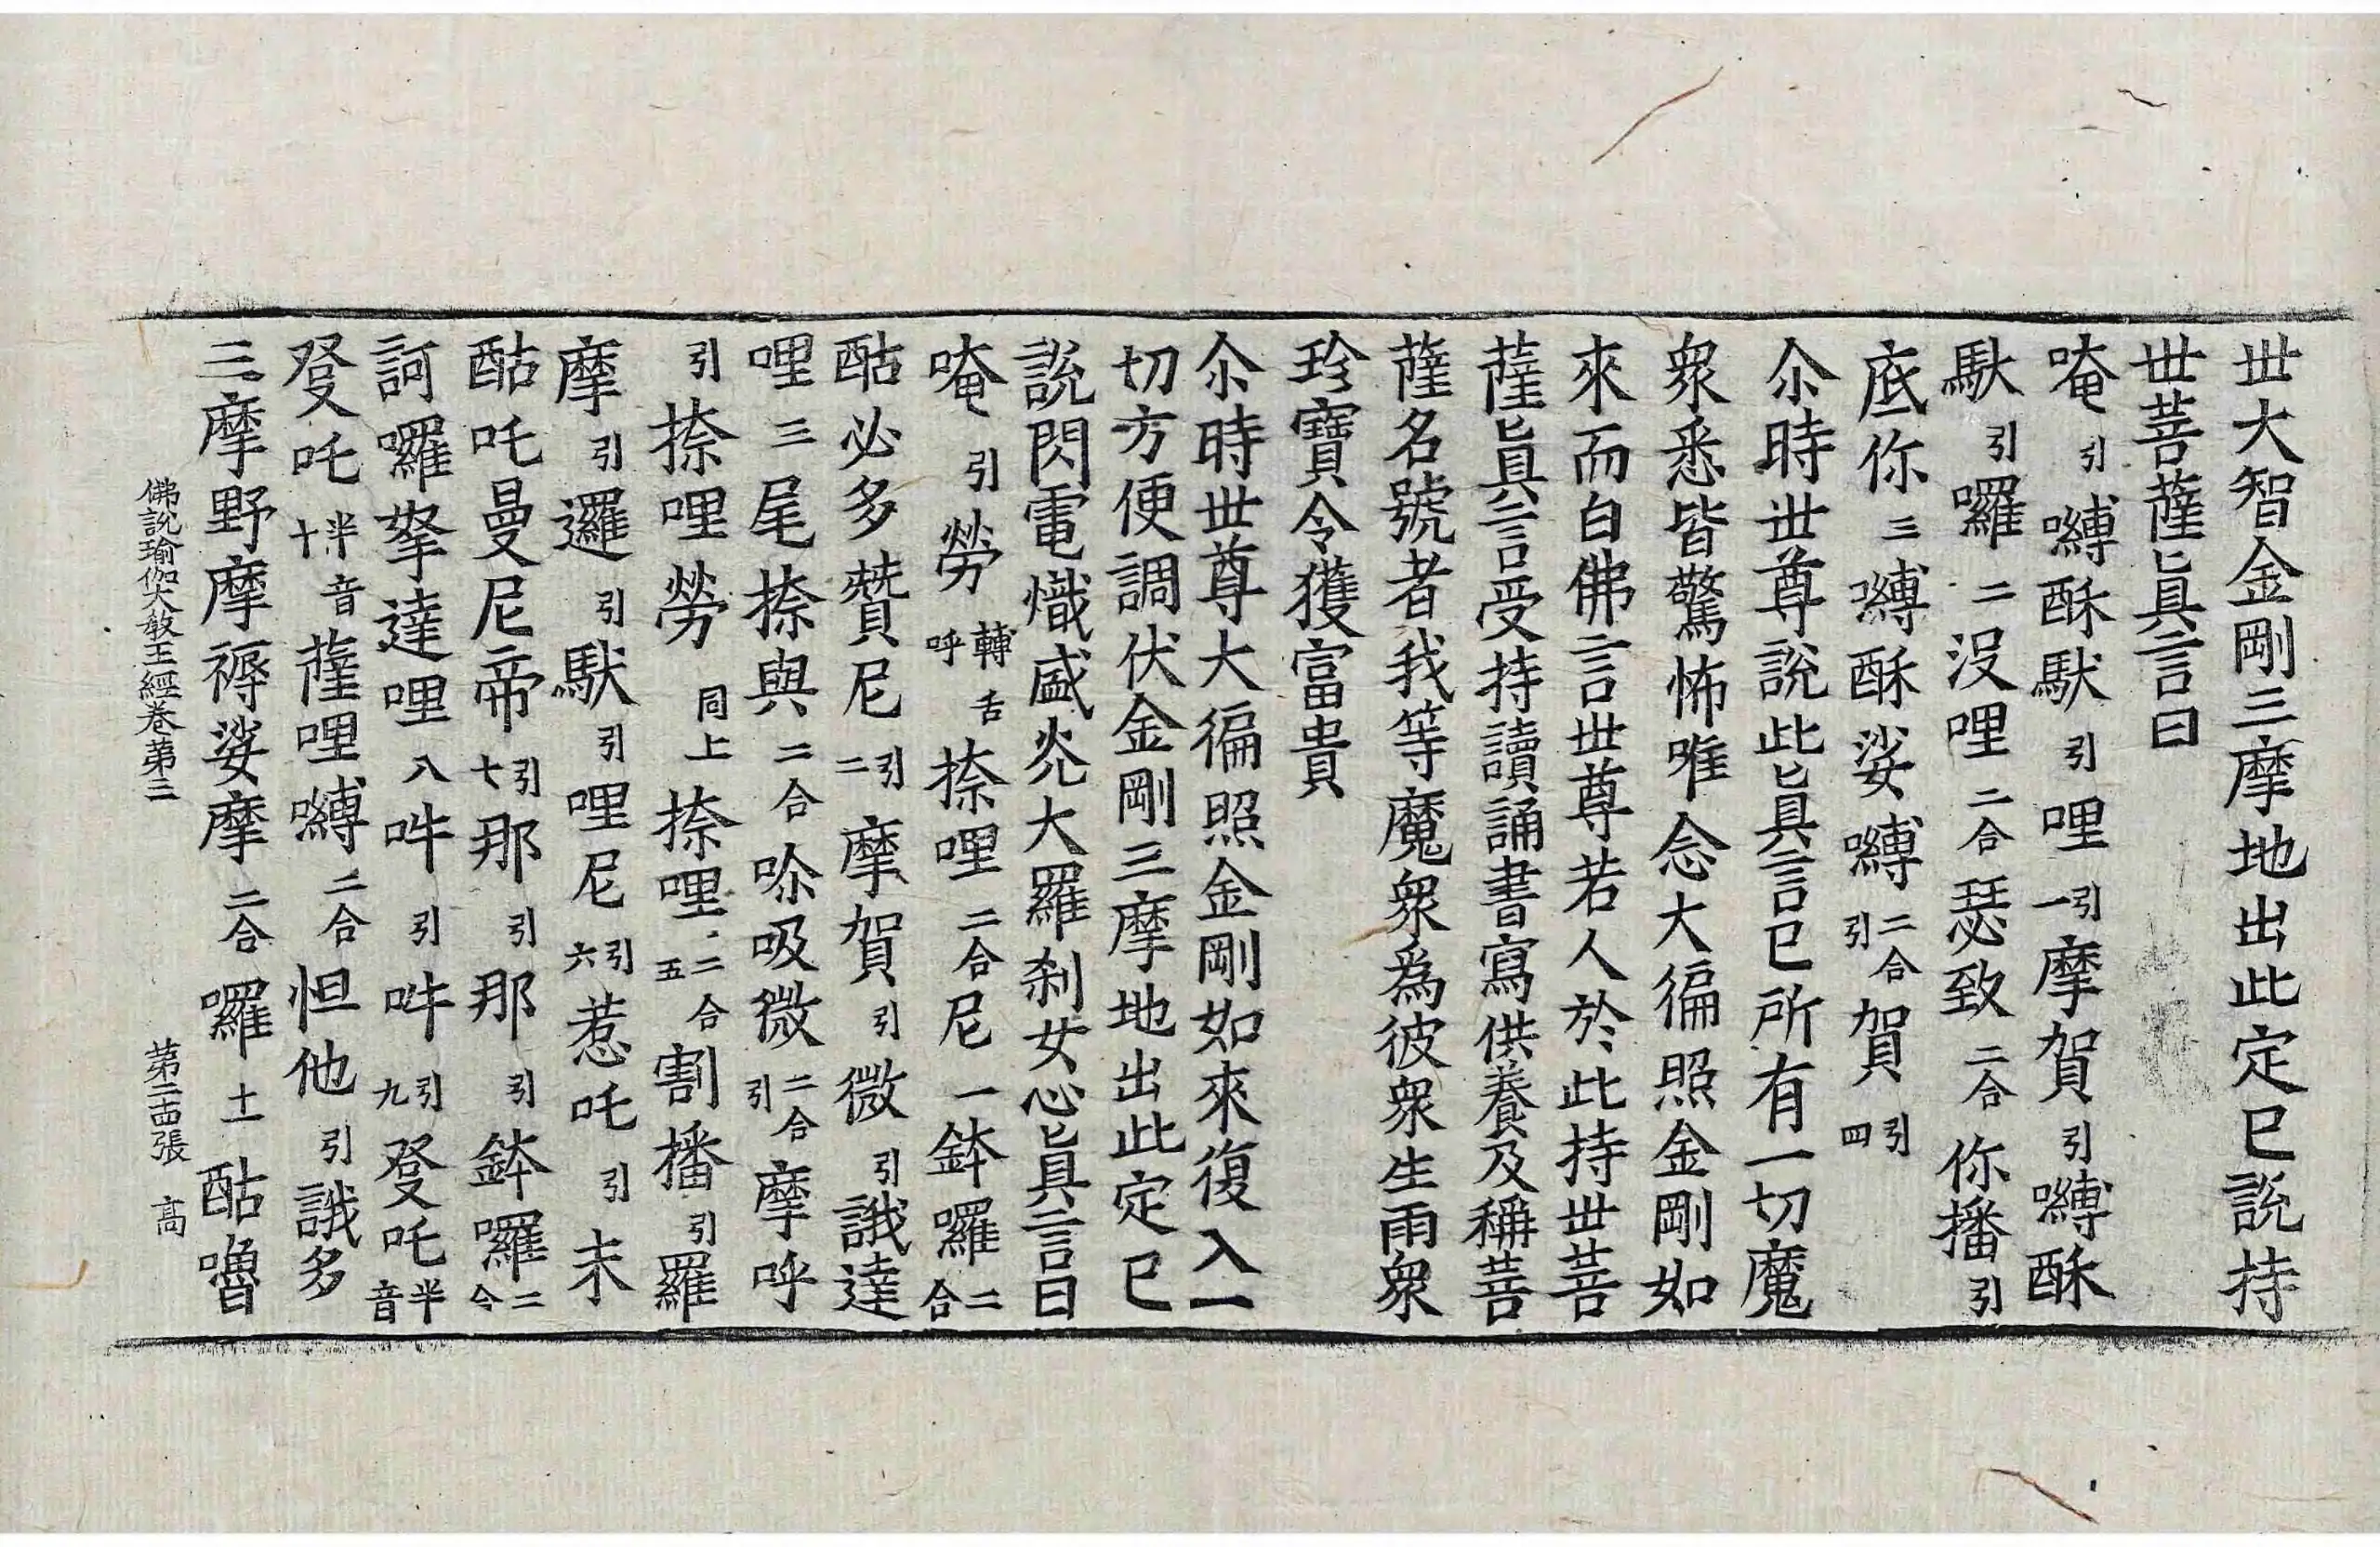 世大智金剛三摩地出此定已說持
世菩薩眞言曰
唵引嚩酥馱引哩引一摩賀引嚩酥
馱引囉二沒哩二合瑟致二合你播引
底你三嚩酥娑嚩二合引賀引四
尒時世尊說此眞言已所有一切魔
衆悉皆驚怖唯念大徧照金剛如
來而白佛言世尊若人於此持世菩
薩眞言受持讀誦書寫供養及稱菩
薩名號者我等魔衆爲彼衆生雨衆
珍寶令獲富貴
尒時世尊大徧照金剛如來復入一
切方便調伏金剛三摩地出此定已
說閃電熾盛光大羅刹女心眞言曰
唵引勞轉舌呼捺哩二合尼一鉢囉二合
酤必多贊尼引二摩賀引微引誐達
哩三尾捺與二合吩吸微二合引摩呼
引捺哩勞同上捺哩二合五割播引羅
摩引邏引馱引哩尼引六惹吒引末
酤吒曼尼帝引七那引那引鉢囉二合
訶囉拏達哩八吽引吽引九發吒半音
發吒半音十薩哩嚩二合怛他引誐多
三摩野摩褥娑摩二合囉十一酤嚕
佛說瑜伽大教王經卷第三 第二十四張 高